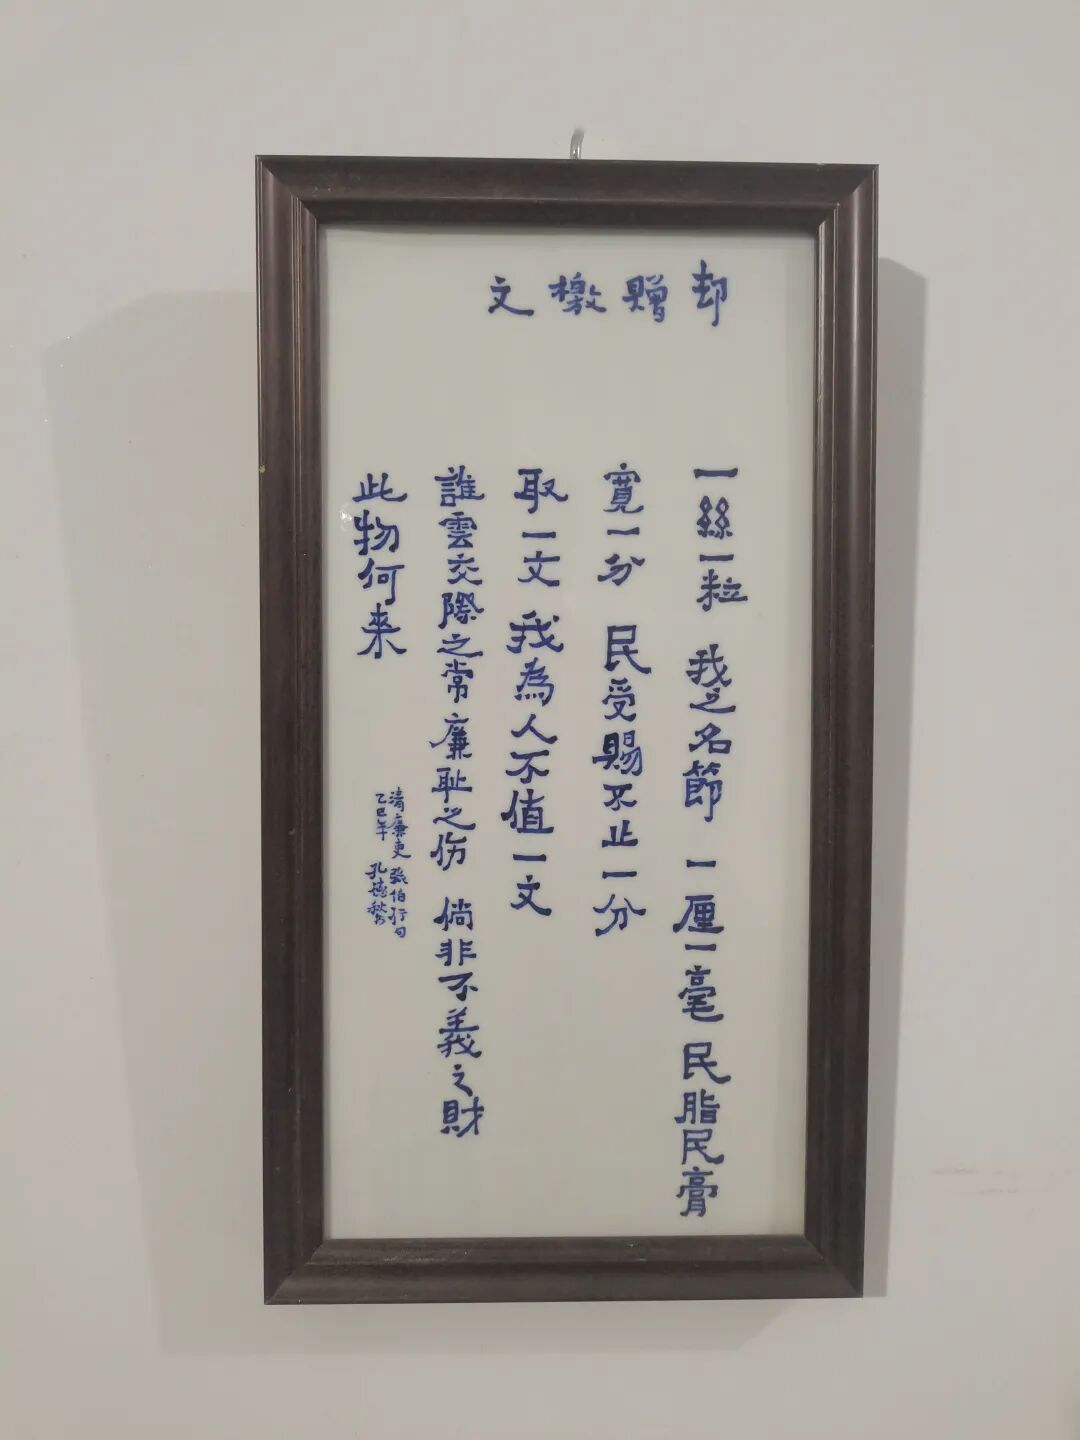 却贈檄文
一絲一粒 我之名節 一厘一毫 民脂民膏
寬一分 民受賜不止一分
取一文 我為人不值一文
誰雲交際之常廉恥之伤 倘非不義之財
此物何来
清廉吏 張伯行句
乙巳年 孔德秋书